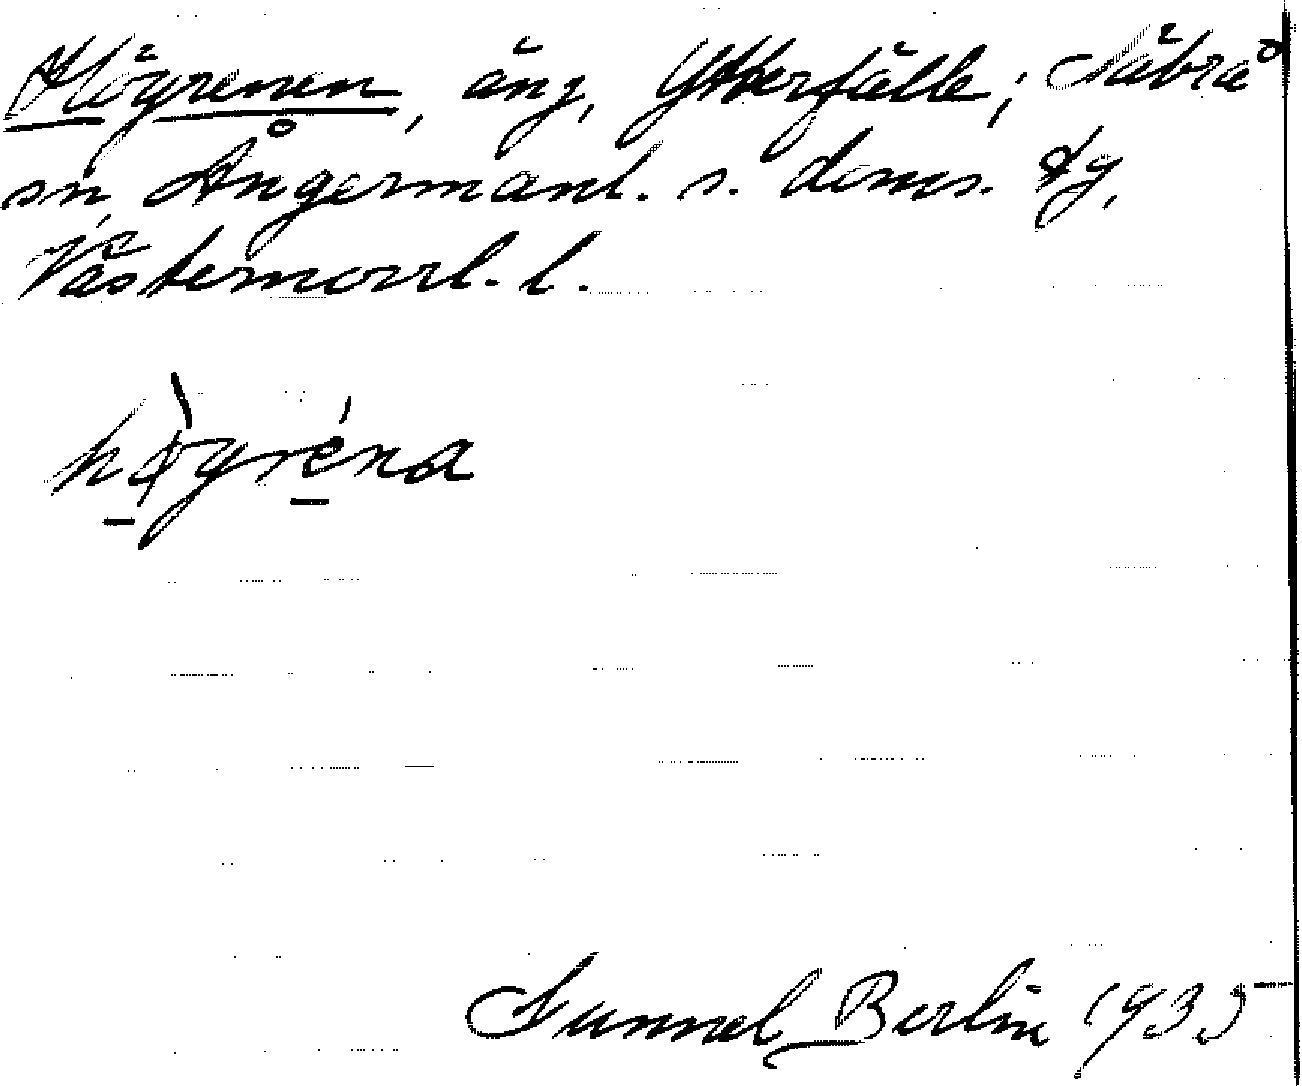 Högrenen, äng, Ytterfälle, Säbrå
sn, Ångermanl. s. doms. tg,
Västernorrl. l.
hø̀gréna
Gunnel Berlin 1935